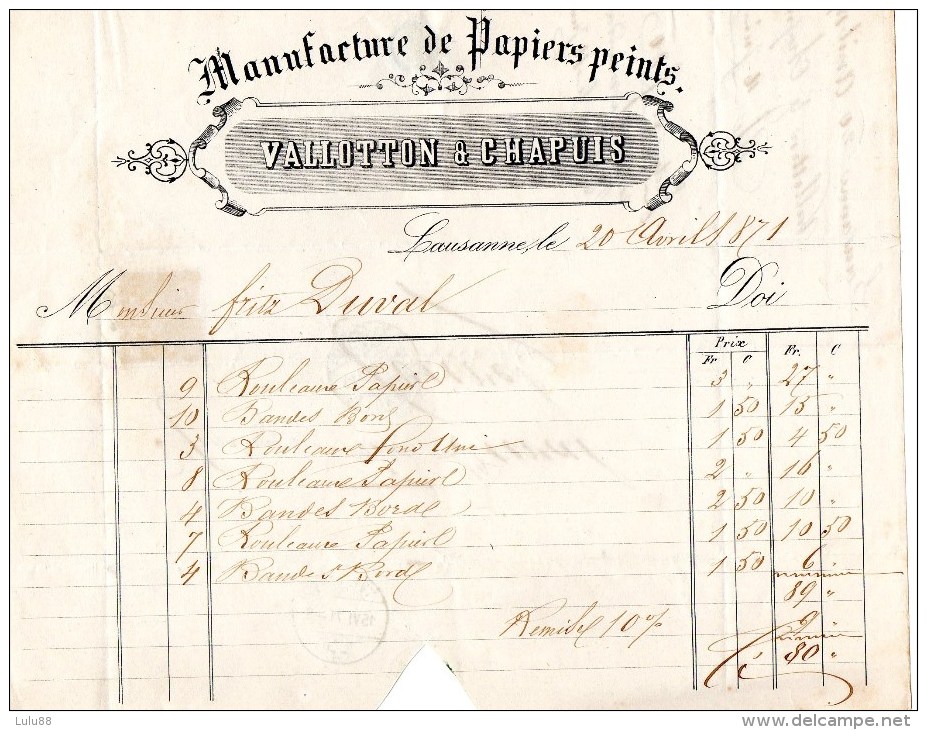 Manufacture de Papiers peints.
VALLOTTON & CHAPUIS
Lausanne, le 20 Avril 1871
Monsieur fritz Duval Doi
Prix
Fr. C Fr. C
9 Rouleaux Papier 3 „ 27 „
10 Bandes Bord 1 50 15 „
3 Rouleaux fond Uni 1 50 4 50
8 Rouleaux Papier 2 „ 16 „
4 Bandes Bord 2 50 10 „
7 Rouleaux Papier 1 50 10 50
4 Bandes Bord 1 50 6
89 „
Remise 10 % 9
80 „
Lulu88
delcampe.net